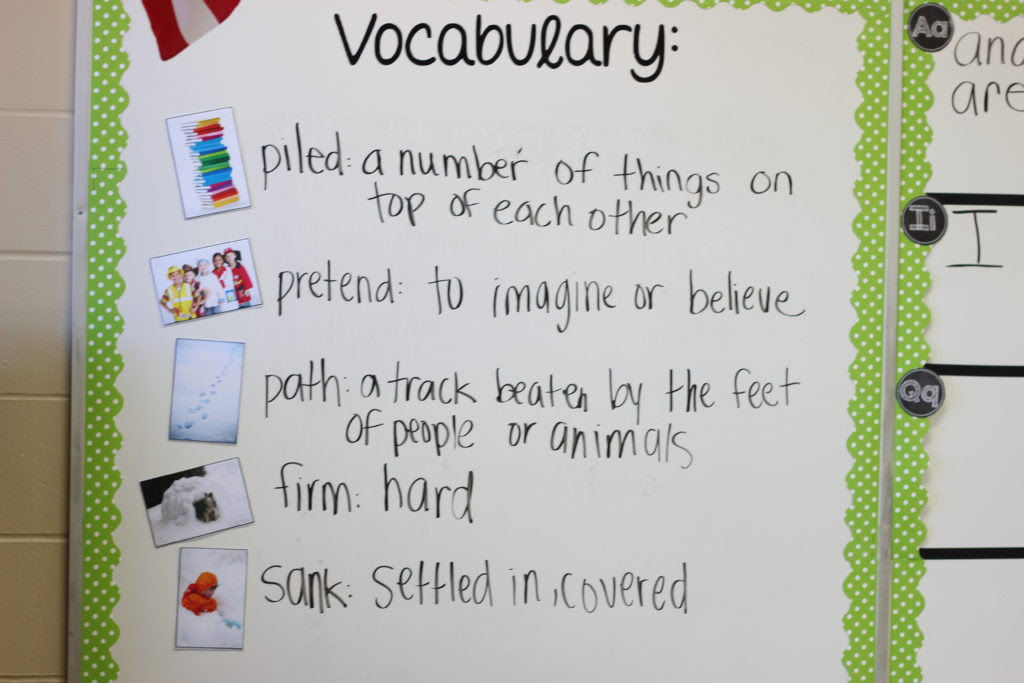 Vocabulary:
piled: a number of things on
top of each other
pretend: to imagine or believe
path: a track beaten by the feet
of people or animals
firm: hard
sank: settled in, covered
Aa
are
Ii
I
Qq